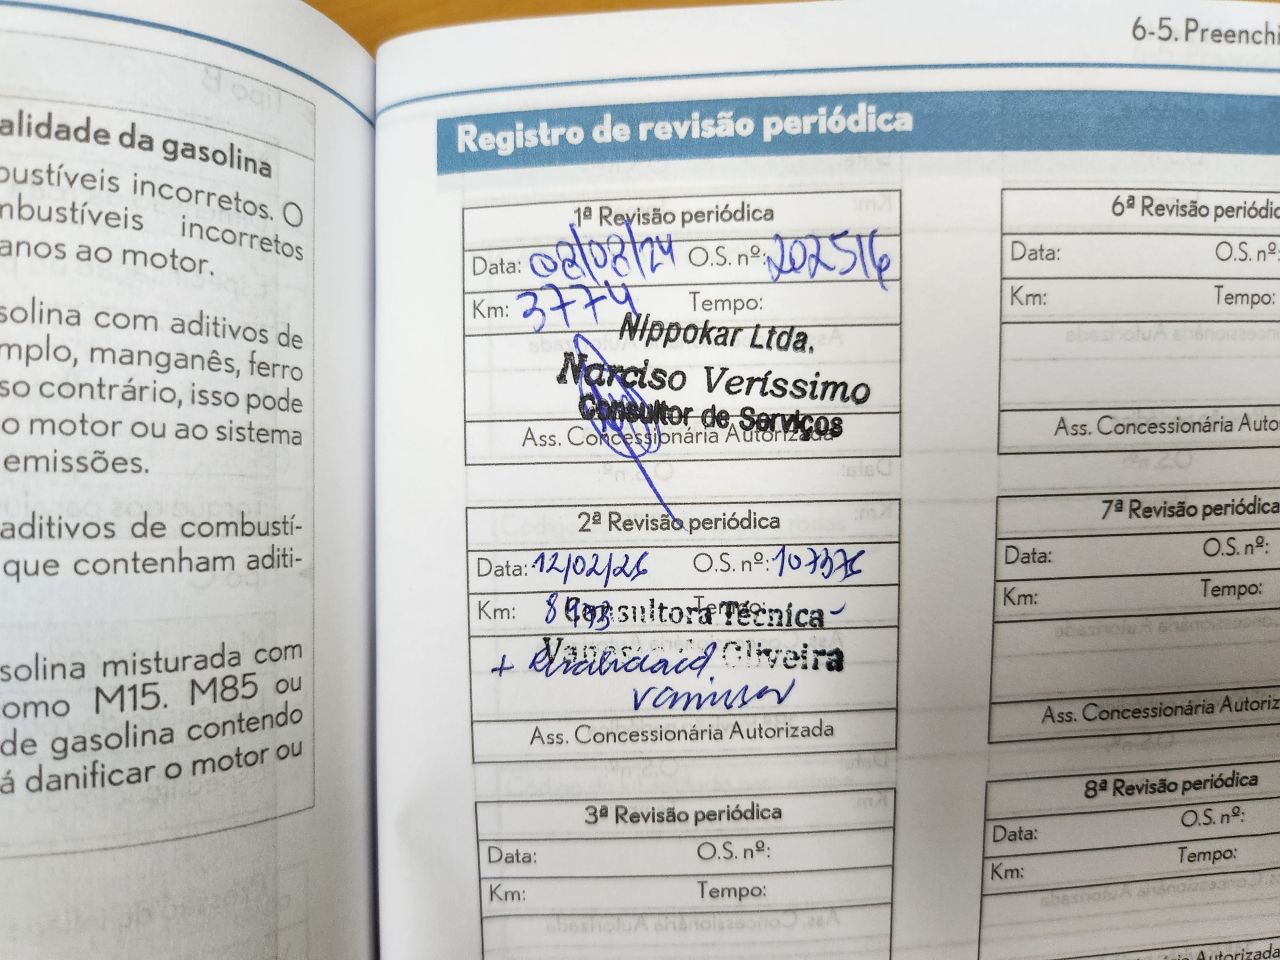 alidade da gasolina
bustíveis incorretos. O
mbustíveis incorretos
anos ao motor.
solina com aditivos de
mplo, manganês, ferro
so contrário, isso pode
o motor ou ao sistema
emissões.
aditivos de combustí-
que contenham aditi-
solina misturada com
omo M15. M85 ou
de gasolina contendo
á danificar o motor ou
6-5. Preenchi
Registro de revisão periódica
1ª Revisão periódica
Data: 08/08/24 O.S. nº: 202516
Km: 3774 Tempo:
Nippokar Ltda.
Narciso Veríssimo
Consultor de Serviços
Ass. Concessionária Autorizada
2ª Revisão periódica
Data: 12/02/26 O.S. nº: 107376
Km: 8993 Tempo:
Consultora Técnica
Oliveira
Ass. Concessionária Autorizada
3ª Revisão periódica
Data: O.S. nº:
Km: Tempo:
6ª Revisão periódic
Data: O.S. nº:
Km: Tempo:
Ass. Concessionária Auto
7ª Revisão periódica
Data: O.S. nº:
Km: Tempo:
Ass. Concessionária Autoriz
8ª Revisão periódica
Data: O.S. nº:
Km: Tempo: